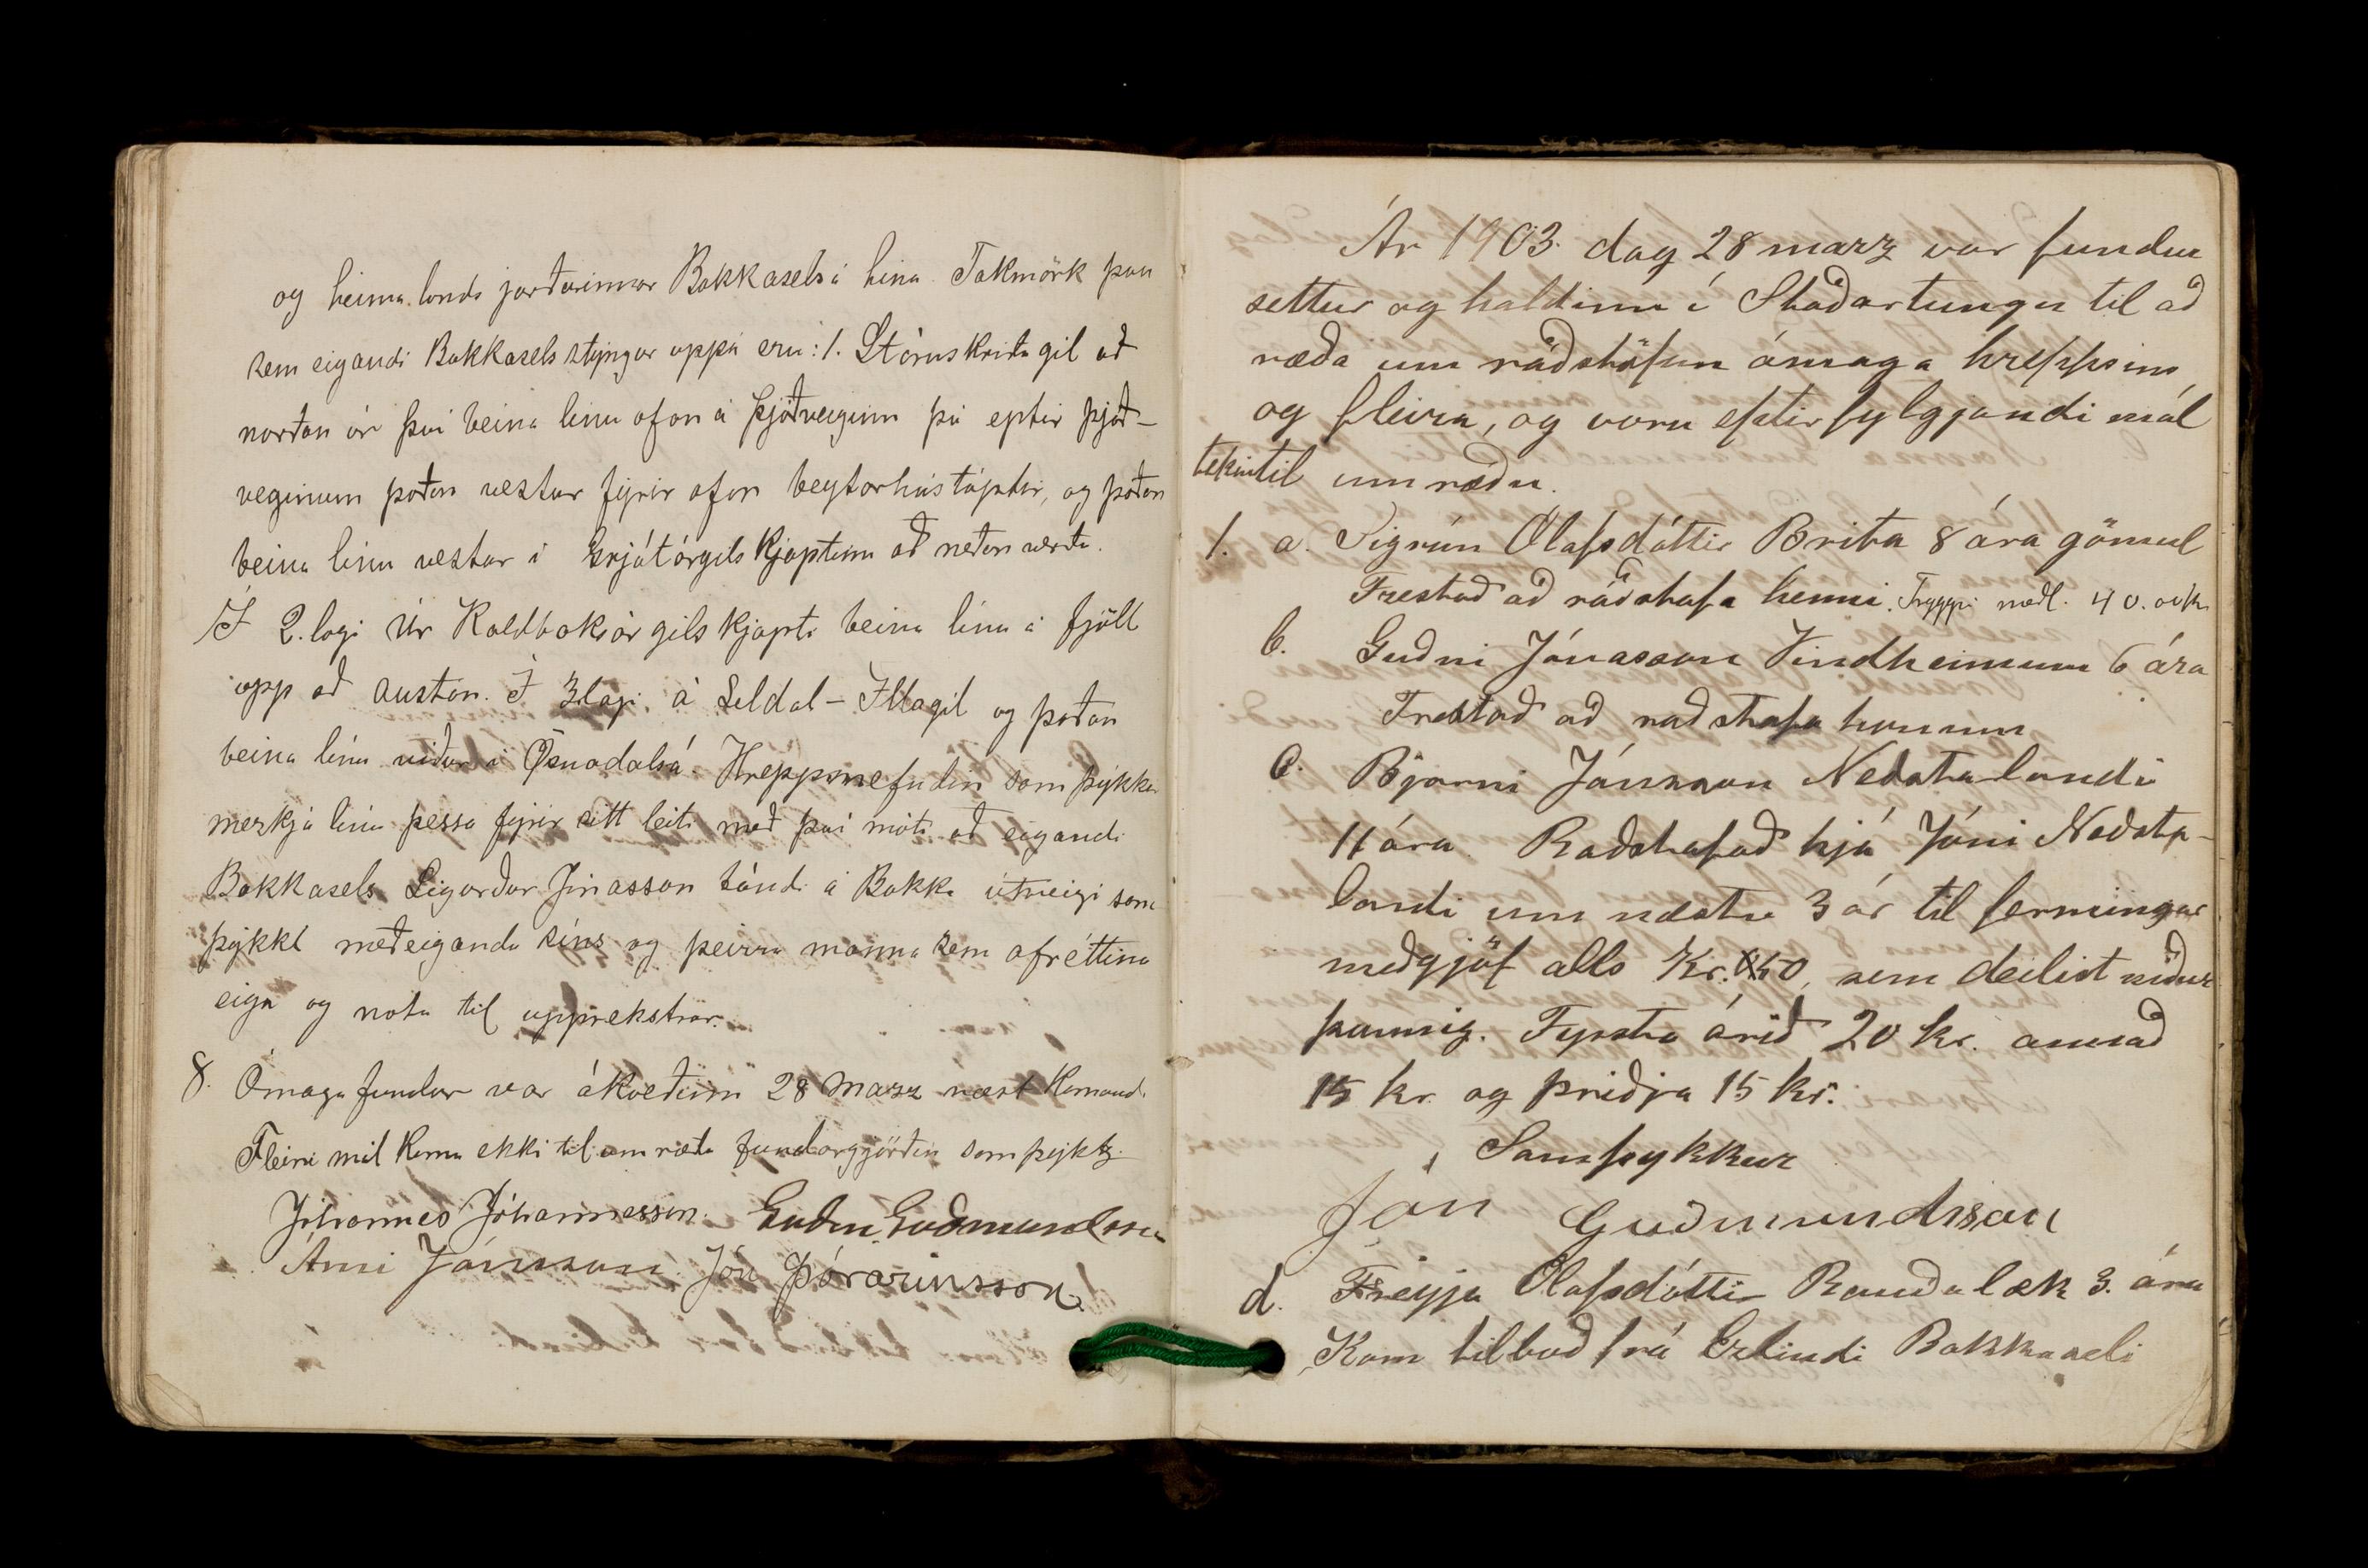 og heimalands jarðarinnar Bakkasels á hina. Takmörk þau
sem eigandi Bakkasels stýngur uppá eru: 1. Stóruskriðugil að
norðan úr því beina línu ofan á þjóðveginn þá eptir þjóð-
veginum þaðan vestur fyrir ofan beytarhústóptir, og þaðan
beina línu vestur í Grjótárgilskjaptinn að neðanverðu.
Í 2. lagi Úr Kaldbaksárgilskjapti beina línu á fjöll
upp að austan. Í 3 lagi. á Seldal - Illagil og þaðan
beina línu niður í Öxnadalsá. Hreppsnefndin samþykkir
merkjalínu þessa fyrir sitt leiti með því móti að eigandi
Bakkasels Sigurður Jónasson bóndi á Bakka útveigi sam
þykkt meðeiganda síns og þeirra manna sem afréttina
eiga og nota til upprekstrar.
8. Ómagafundur var ákveðinn 28 Marz næstkomandi
Fleiri mál komu ekki til umræðu fundargjörðin samþykt.
Jóhannes Jóhannesson. Guðm. Guðmundsson
Árni Jónsson. Jón Þórarinsson
Ár 1903. dag 28 marz var fundur
settur og haldinn í Staðartungu til að
ræða um ráðstöfun ómaga hreppsins
og fleira, og voru eptirfylgjandi mál
tekin til umræðu.
1. a. Sigrún Ólafsdóttir Brita 8 ára gömul
Frestað að ráðstafa henni. Tryggvi meðl. 40.
b. Guðni Jónasson Vindheimum 6 ára
Frestað að ráðstafa honum
c. Bjarni Jónsson Neðstalandi
11 ára. Raðstafað hjá Jóni Neðsta-
landi um næstu 3 ár til fermingar
meðgjöf alls Kr. 50, sem deilist niður
þannig. Fyrsta árið 20 kr. annað
15 kr. og þriðja 15 kr.
Samþykkur
Jón Guðmundsson
d. Freyja Ólafsdóttir Rauðalæk 3. ára
Kom tilboð frá Erlindi Bakkaseli